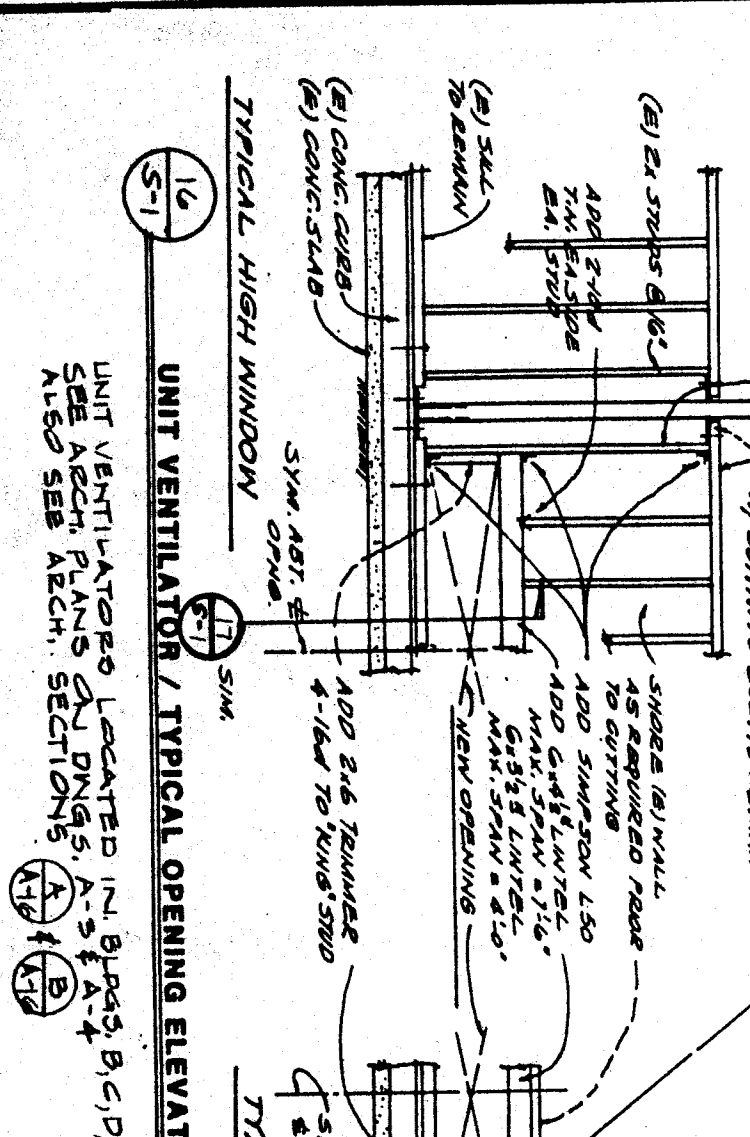 (E) 2x STUDS @ 16"
ADD 2-10d
T.N. EA. SIDE
EA. STUD
(E) SILL
TO REMAIN
(E) CONC. CURB
(E) CONC. SLAB
TYPICAL HIGH WINDOW
SHORE (E) WALL
AS REQUIRED PRIOR
TO CUTTING
ADD SIMPSON L50
ADD 6x4½ LINTEL
MAX. SPAN = 7'-6"
6x3½ LINTEL
MAX. SPAN = 4'-0"
NEW OPENING
ADD 2x6 TRIMMER
4-16d TO "KING" STUD
SYM. ABT. ℄
OPNG.
17
S-1
SIM.
16
S-1
UNIT VENTILATOR / TYPICAL OPENING ELEVAT
UNIT VENTILATORS LOCATED IN BLDGS, B, C, D,
SEE ARCH. PLANS ON DNGS. A-3 & A-4
ALSO SEE ARCH. SECTIONS
A
A-16
&
B
A-16
TY